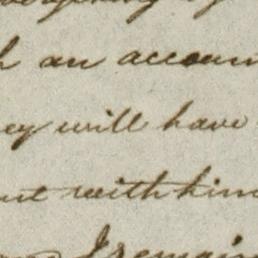 an accoun
ey will have
with him
I remain